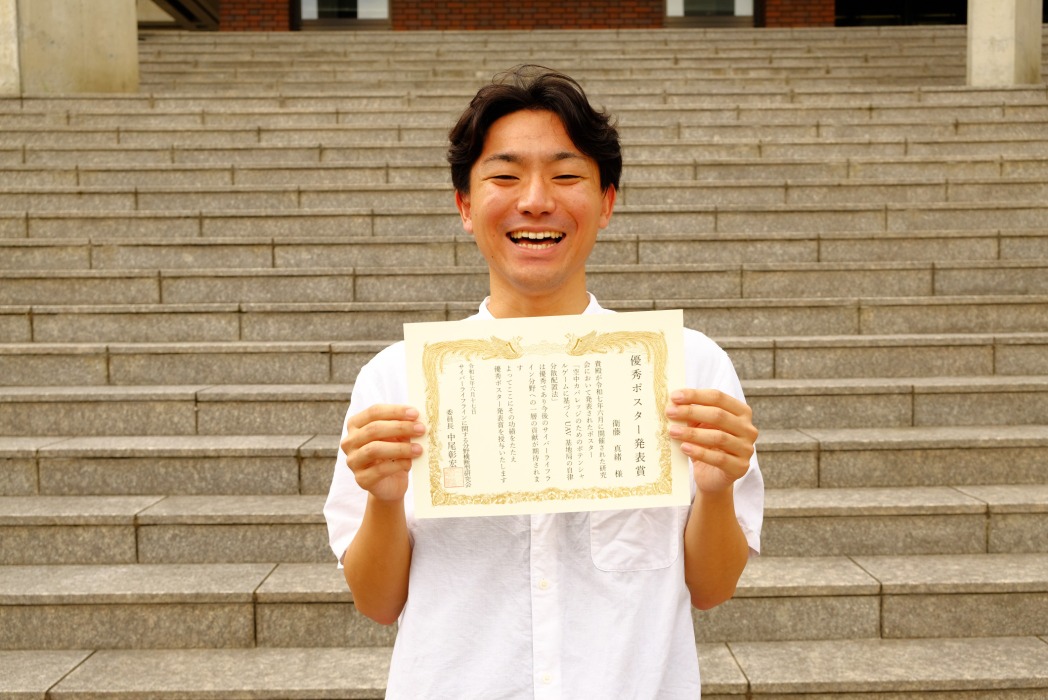 優秀ポスター発表賞
衛藤 真緒 様
貴殿が令和七年六月に開催された研究
会において発表されたポスター
「空中カバレッジのためのポテンシャ
ルゲームに基づくUAV基地局の自律
分散配置法」
は優秀であり今後のサイバーライフラ
イン分野への一層の貢献が期待されま
す
よってここにその功績をたたえ
優秀ポスター発表賞を授与いたします
令和七年六月十七日
サイバーライフラインに関する分野横断型研究会
委員長 中尾彰宏